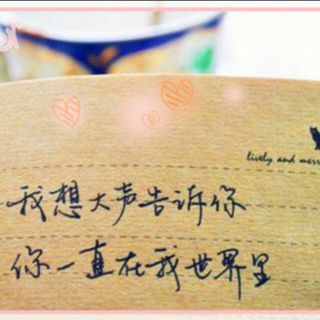 lively and merr
我想大声告诉你
你一直在我世界里